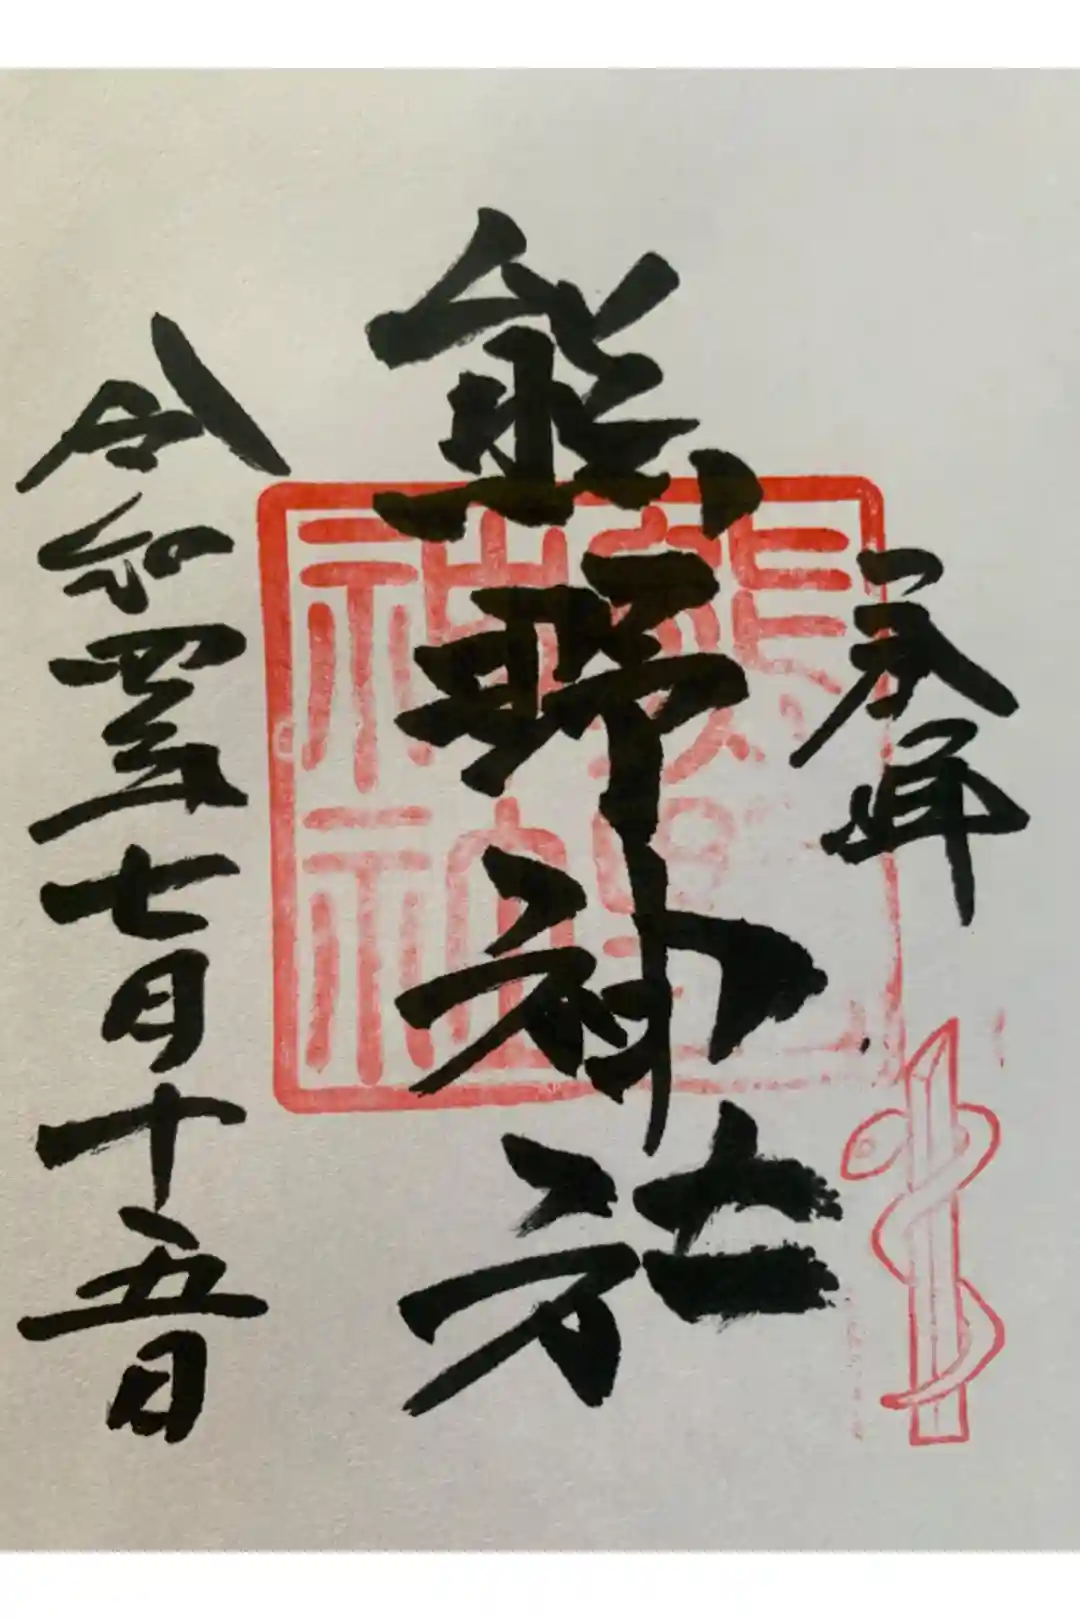 奉拝
熊野神社
熊野
神社
令和四年七月十五日